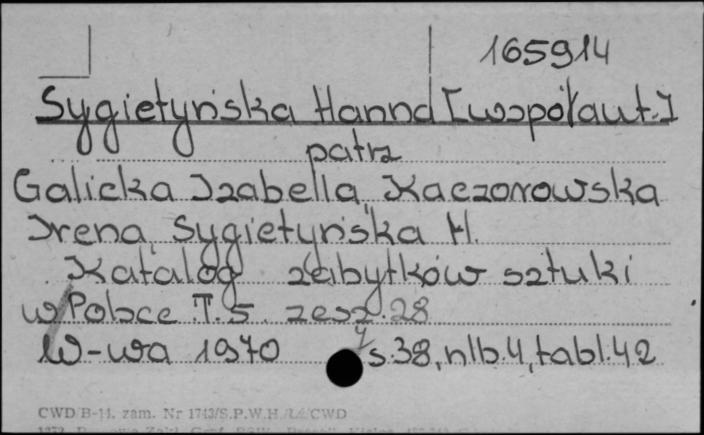 165914
Sygietyńska Hanna [współaut.]
patrz
Galicka Izabella, Kaczorowska
Irena, Sygietyńska H.
Katalog zabytków sztuki
w Polsce T. 5. zesz. 28
W-wa 1970 s. 38, nlb. 4, tabl. 42
CWD/B-14. zam. Nr 1743/S.P.W.H./Ł/CWD